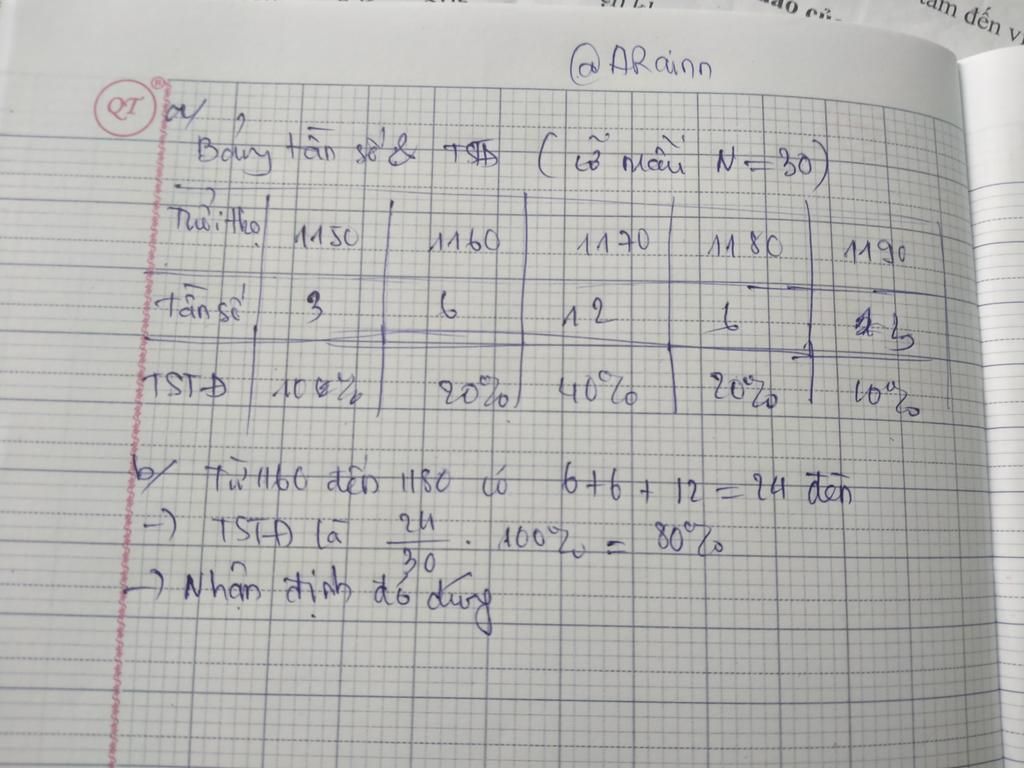 tâm đến v
@ARainn
QT a/
Bảng tần số & TSTĐ (cỡ mẫu N = 30)
Tuổi thọ 1150 1160 1170 1180 1190
Tần số 3 6 12 6 3
TSTĐ 10% 20% 40% 20% 10%
b/ Từ 1160 đến 1180 có 6 + 6 + 12 = 24 đèn
→ TSTĐ là 24/30 . 100% = 80%
→ Nhận định đó đúng